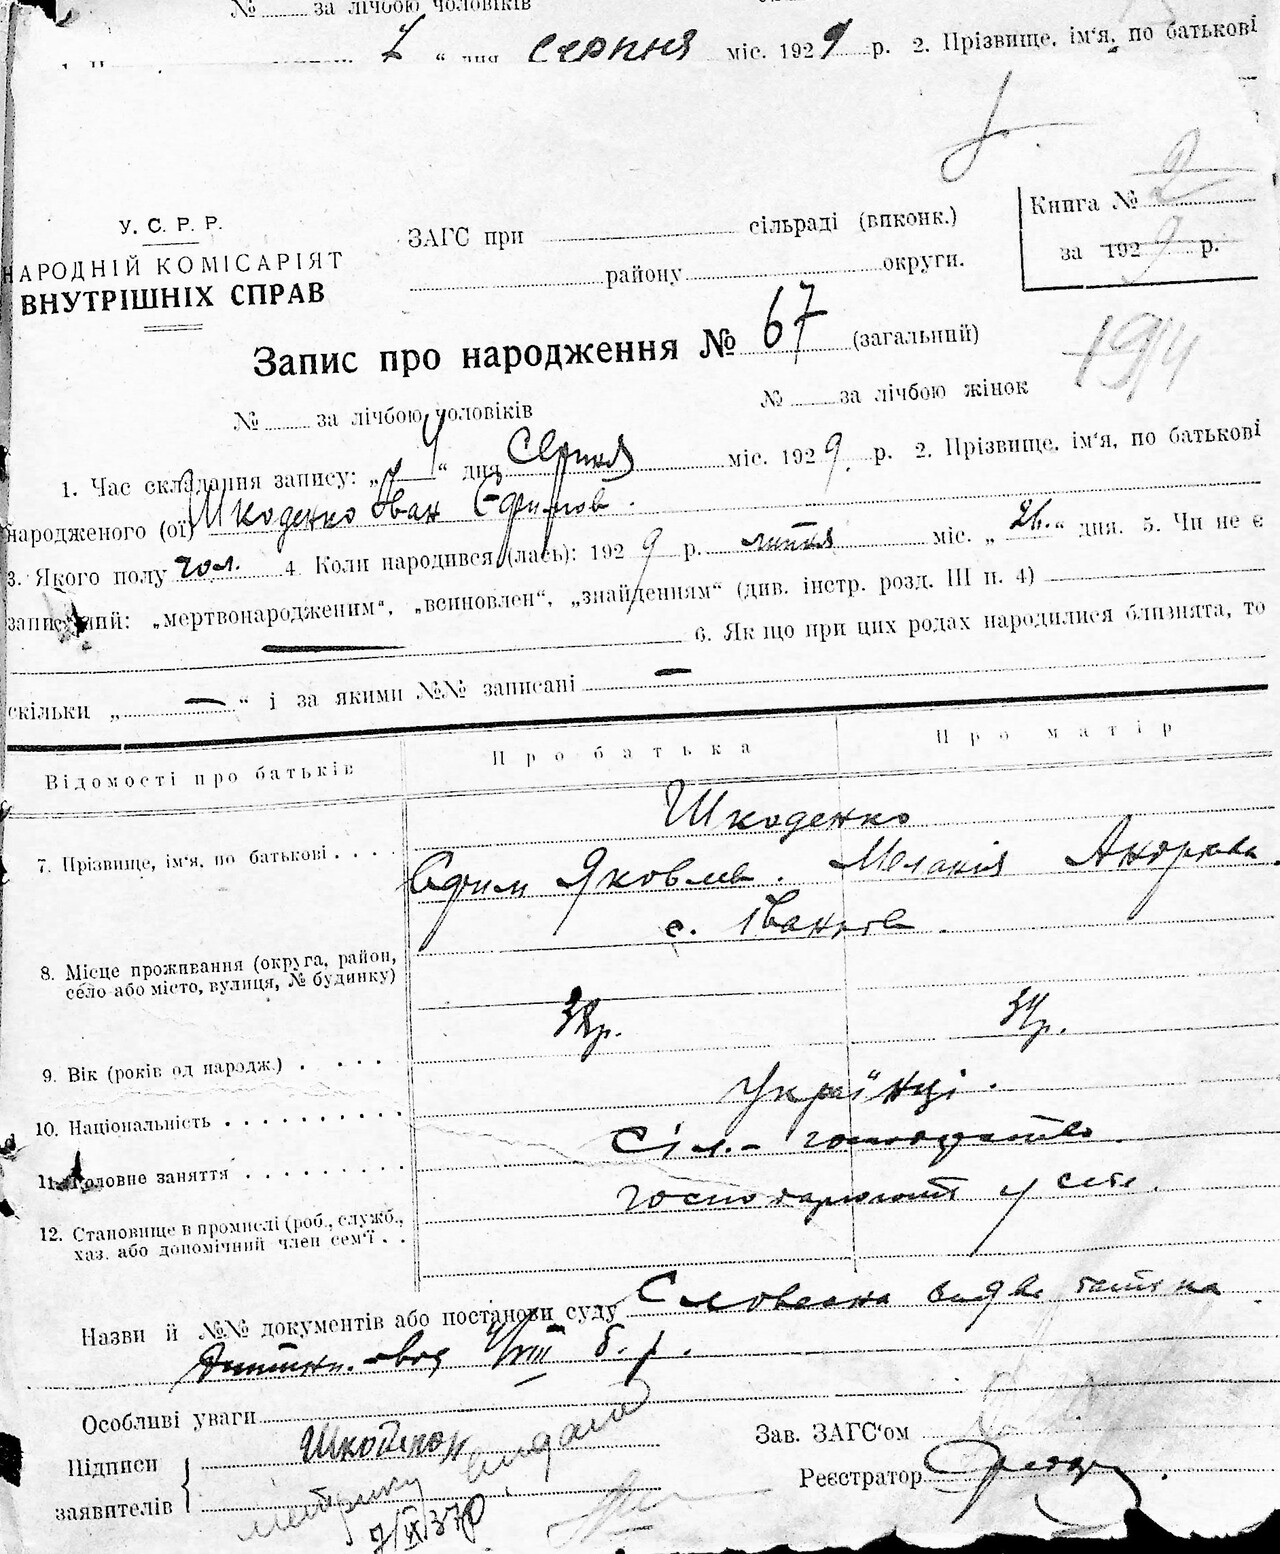 № за лічбою чоловіків
7 " дня серпня міс. 1929 р. 2. Прізвище, ім'я, по батькові
У. С. Р. Р.
НАРОДНІЙ КОМІСАРІЯТ
ВНУТРІШНІХ СПРАВ
ЗАГС при сільраді (виконк.)
району округи.
Книга № 2
за 1929 р.
Запис про народження № 67 (загальний)
№ за лічбою чоловіків № за лічбою жінок
1. Час складання запису: „ “ дня Серпня міс. 1929 р. 2. Прізвище, ім'я, по батькові
народженого (ої) Шкоденко Іван Єфимов.
3. Якого полу чол. 4. Коли народився (лась): 1929 р. липня міс. „26.“ дня. 5. Чи не є
записаний: „мертвонародженим“, „всиновлен“, „знайденням“ (див. інстр. розд. III п. 4)
6. Якщо при цих родах народилися близнята, то
скільки „ — “ і за якими №№ записані —
Відомості про батьків Про батька Про матір
Шкоденко
7. Прізвище, ім'я, по батькові . . . .
Єфим Яковлев. Меланія Андрієва.
с. Іванков.
8. Місце проживання (округа, район,
село або місто, вулиця, № будинку)
38р. 34р.
9. Вік (років од народж.) . . . .
Українці.
10. Національність . . . . . . . . .
Сіл.-господарство.
11. Головне заняття . . . . . . . .
господарюють у себе.
12. Становище в промислі (роб., служб.,
хаз. або допомічний член сем'ї . .
Назви й №№ документів або постанови суду Словесна батька
4/VIII б. р.
Особливі уваги
Підписи
заявителів
Шкоденко
Зав. ЗАГС'ом
Реєстратор
Метрику видано